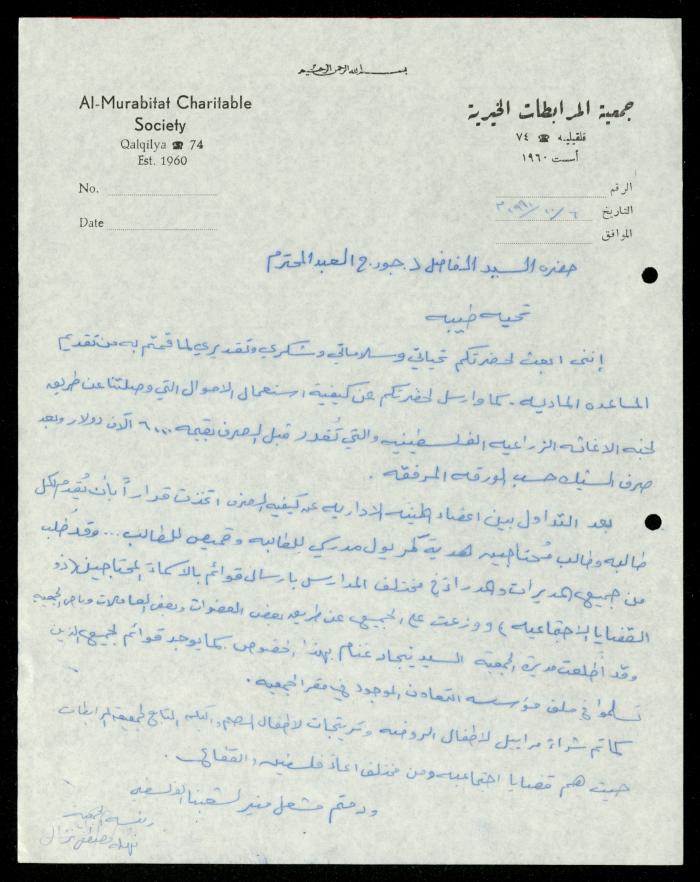 بسم الله الرحمن الرحيم
Al-Murabitat Charitable
Society
Qalqilya ☎ 74
Est. 1960
No.
Date
جمعية المرابطات الخيرية
قلقيليه ☎ ٧٤
أسست ١٩٦٠
الرقم
التاريخ ٦ / ١٠ /
الموافق
حضرة السيد الفاضل د. جورج العبد المحترم
تحيه طيبه
إنني ابعث لحضرتكم تحياتي وسلاماتي وشكري وتقديري لما قمتم به من تقديم
المساعده الماديه. كما وارسل لحضرتكم عن كيفية استعمال الاموال التي وصلتنا عن طريقه
لجنه الاغاثه الزراعيه الفلسطينيه والتي تُقدر قبل الصرف بقيمه ٦٠٠٠ آلاف دولار وبعد
صرف الشيك حسب الورقه المرفقه.
بعد التداول بين اعضاء الهيئه الاداريه عن كيفيه الصرف اتخذت قراراً بأن تُقدم لكل
طالبه وطالب مُحتاجين هدية مدرسي للطالبه وقميص للطالب ... وقد طُلب
من جميع المديرات والمدراء في مختلف المدارس بارسال قوائم بالاسماء المحتاجين (ذو
القضايا الاجتماعيه) ووزعت على الجميع عن طريق بعض العضوات وبعض العاملات
وقد اطلعت مديرة الجمعية السيد بهذا الخصوص. كما يوجد قوائم لجميع الذين
تسلموا في ملف مؤسسه التعاون الموجود في مقر الجمعيه.
كما تم شراء مراييل لاطفال الروضه لاطفال التابع لجمعية المرابطات
حيث هم قضايا اجتماعيه ومن مختلف انحاء فلسطين
ودمتم مشعل منير لشعبنا الفلسطيني
رئيسه الجمعيه